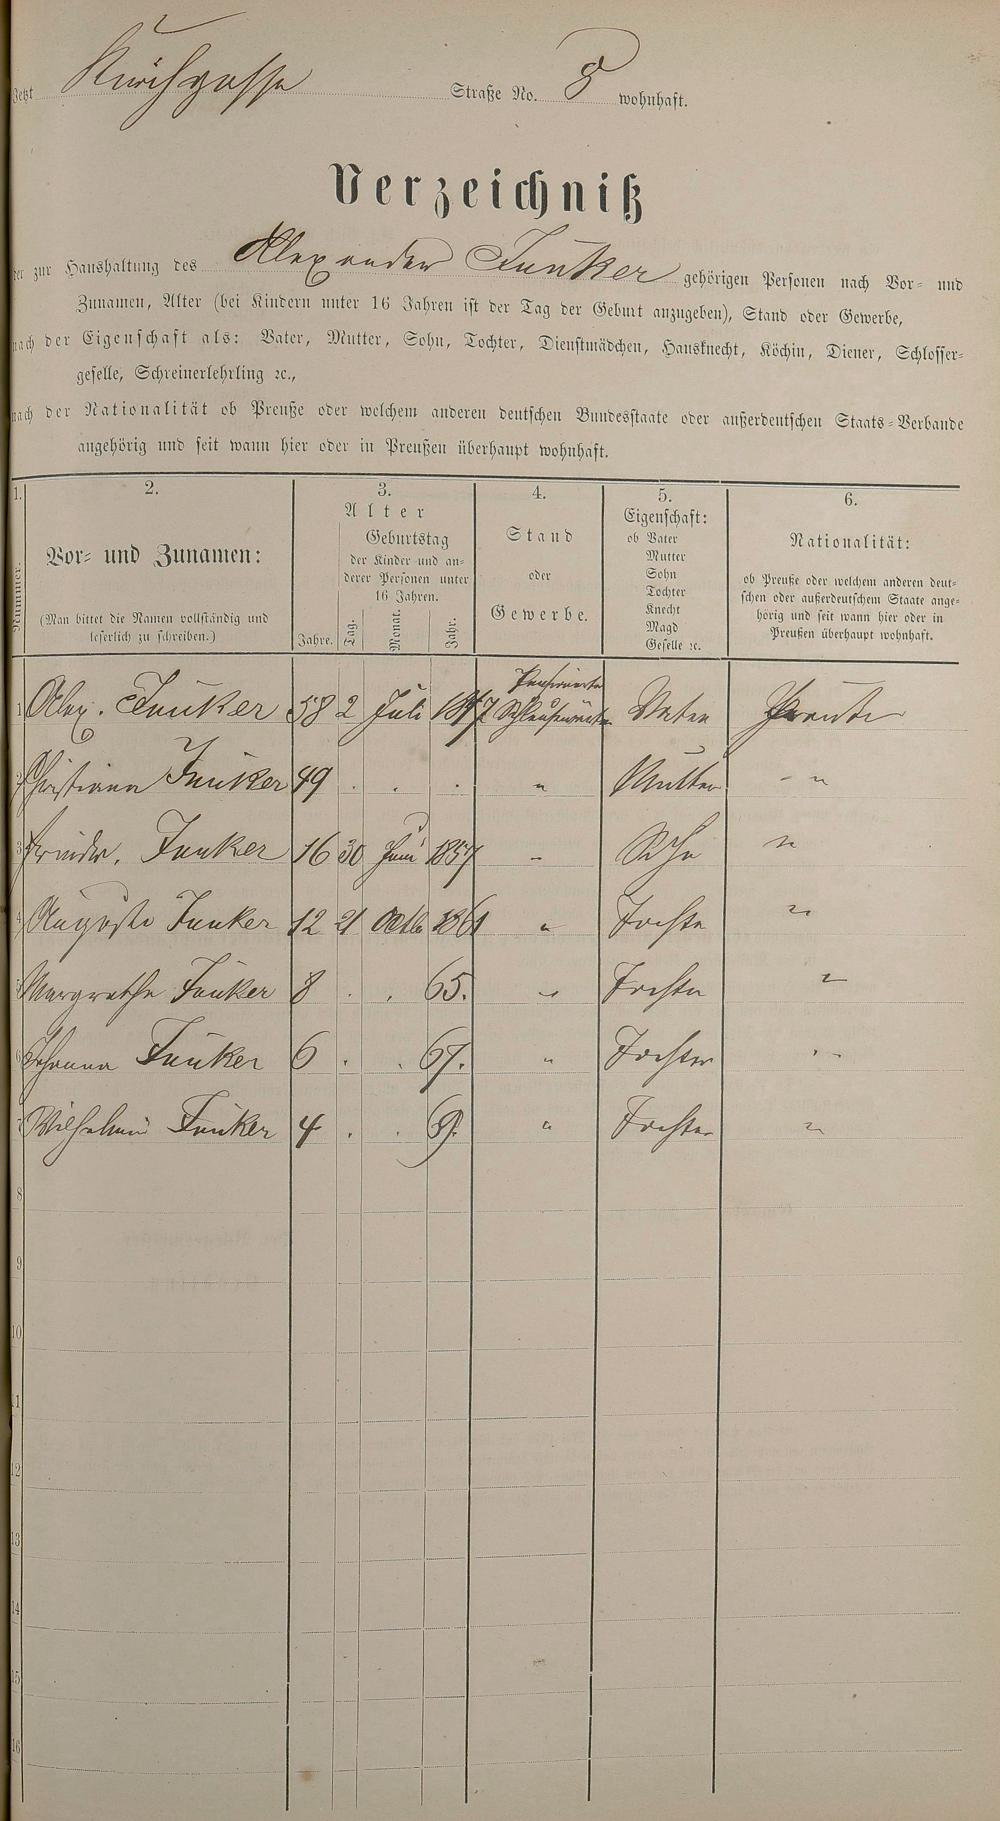 Jetzt Kirchgasse Straße No. 8 wohnhaft.
Verzeichniß
der zur Haushaltung des Alexander Junker gehörigen Personen nach Vor- und
Zunamen, Alter (bei Kindern unter 16 Jahren ist der Tag der Geburt anzugeben), Stand oder Gewerbe,
nach der Eigenschaft als: Vater, Mutter, Sohn, Tochter, Dienstmädchen, Hausknecht, Köchin, Diener, Schlosser-
geselle, Schreinerlehrling ꝛc.,
nach der Nationalität ob Preuße oder welchem anderen deutschen Bundesstaate oder außerdeutschen Staats-Verbande
angehörig und seit wann hier oder in Preußen überhaupt wohnhaft.
1. 2. 3. 4. 5. 6.
Nummer.
Vor- und Zunamen:
(Man bittet die Namen vollständig und
leserlich zu schreiben.)
Alter
Jahre.
Geburtstag
der Kinder und an-
derer Personen unter
16 Jahren.
Tag. Monat. Jahr.
Stand
oder
Gewerbe.
Eigenschaft:
ob Vater
Mutter
Sohn
Tochter
Knecht
Magd
Geselle ꝛc.
Nationalität:
ob Preuße oder welchem anderen deut-
schen oder außerdeutschem Staate ange-
hörig und seit wann hier oder in
Preußen überhaupt wohnhaft.
1 Alex. Junker 58 2 Juli Vater Preuße
2 Christiana Junker 49 . . . " Mutter - "
3 Junker 16 30 Juni 1857 " Sohn "
4 Auguste Junker 12 21 Octb 1861 " Tochter "
5 Margrethe Junker 8 . . 65. " Tochter "
6 Johanna Junker 6 . . 67. " Tochter "
7 Wilhelmine Junker 4 . . 69. " Tochter "
8
9
10
11
12
13
14
15
16